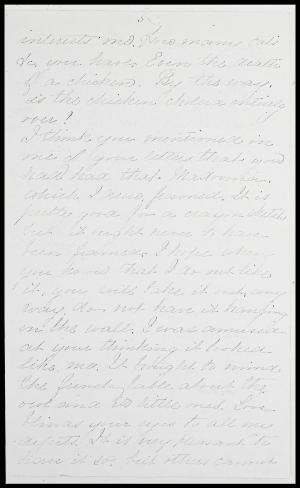 5
interests me. How many cats
do you have. Even the death
of a chicken. By the way,
is the chicken cholera entirely
over?
I think you mentioned in
one of your letters that you
had had that
which I drew, framed. It is
pretty good for a crayon sketch
but it ought never to have
been framed. I hope when
you know that I do not like
it, you will take it out, any
way, do not have it hanging
on the wall. I was amused
at your thinking it looked
like me. It brought to mind
the French fable about the
owl and its little ones. Love
blinds your eyes to all my
defects. It is very pleasant to
have it so, but others cannot